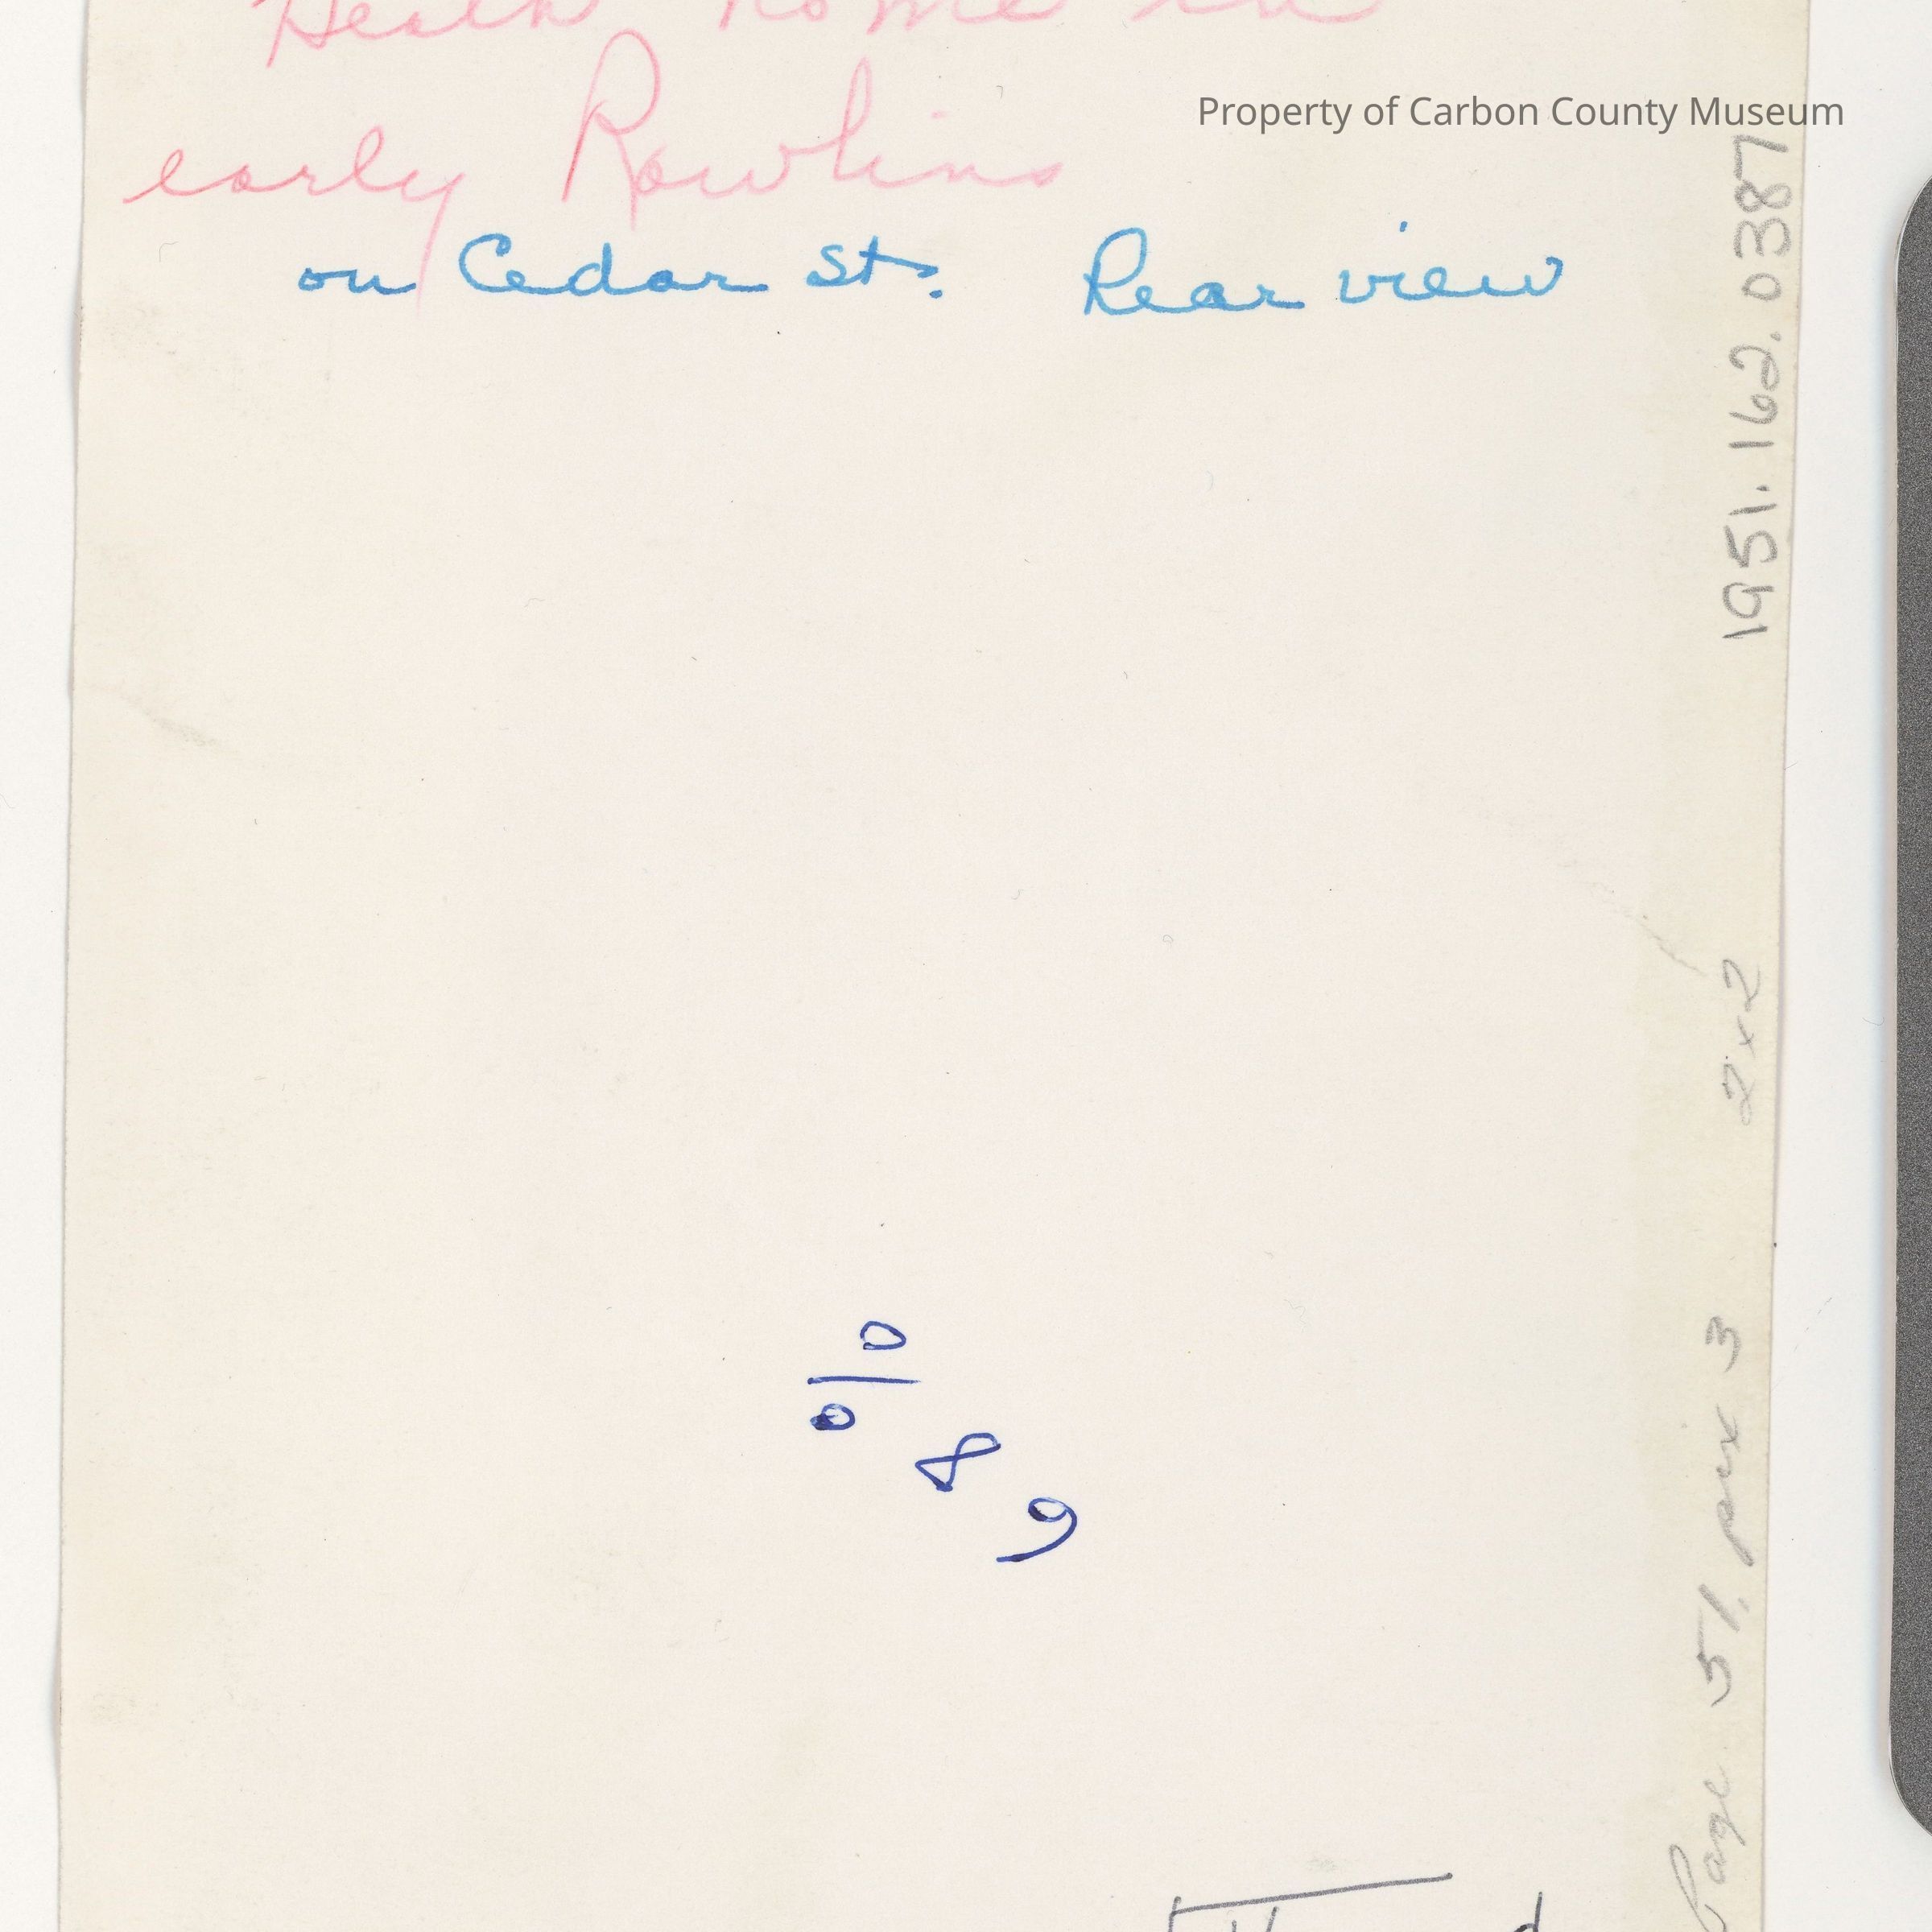 Heath home in
early Rawlins
on Cedar St. Rear view
Property of Carbon County Museum
1951.162.0387
2x2
Page 51, pix 3